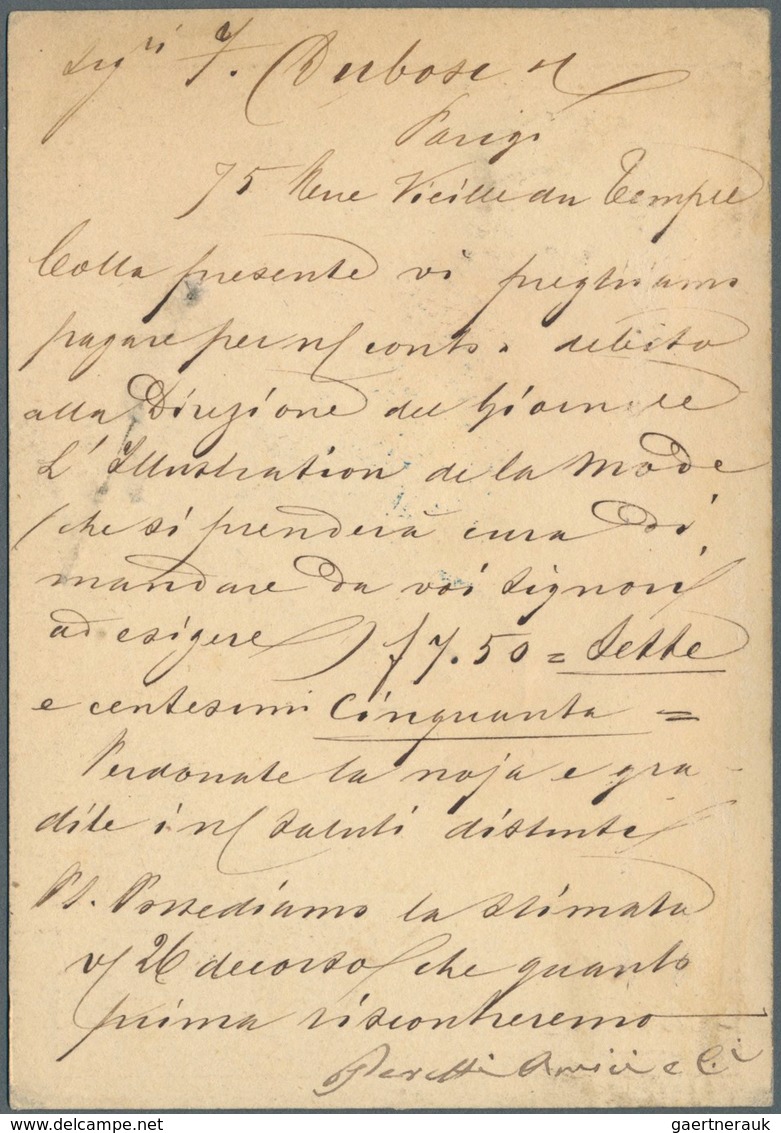 Sigri F. Dubosc
Parigi
75 Rue Vieille du Temple
Colla presente vi preghiamo
pagare per n/ conto e debito
alla Direzione del Giornale
L'Illustration de la Mode
(che si prenderà cura di
mandare da voi Signori
ad esigere) f 7.50 = Sette
e centesimi Cinquanta =
Perdonate la noja e gra-
dite i n/ saluti distinti
PS. Possediamo la stimata
v/ 26 decorso che quanto
prima riscontreremo
Peretti Amici e Ci
gaertnerauk